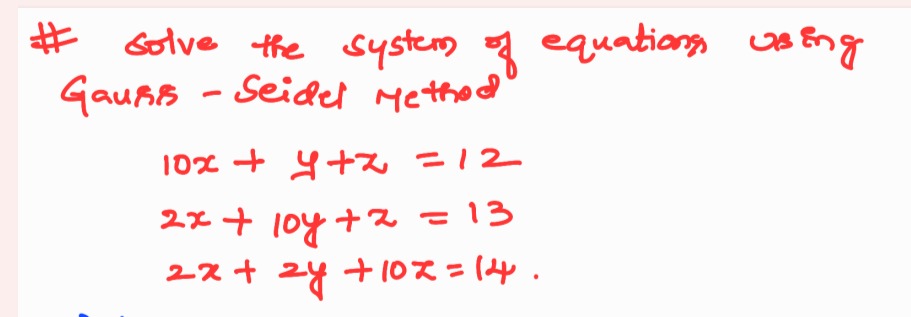 # solve the system of equations using
Gauss - Seidel Method
10x + y + z = 12
2x + 10y + z = 13
2x + 2y + 10z = 14.